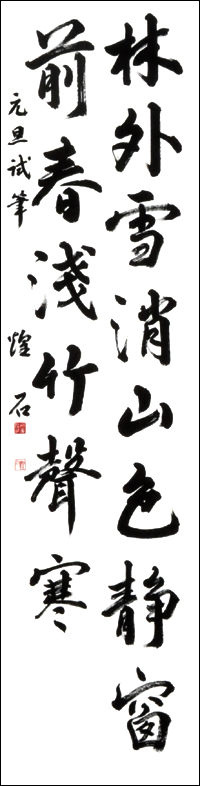 林外雪消山色静窗
前春淺竹聲寒
元旦试筆 煌石